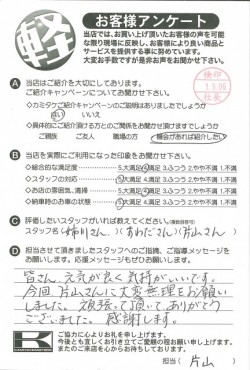 軽
お客様アンケート
当店では、お買い上げ頂いたお客様の声を可能
な限り現場に反映し、お客様により良い商品と
サービスを提供する事に努めています。
大変お手数ですが是非お声をお聞かせ下さい。
検印
社長
A 当店はご紹介を大切にしております。
ご紹介キャンペーンについてお聞かせ下さい。
◇カミタケご紹介キャンペーンのご説明はありましたでしょうか
はい いいえ
◇具体的にご紹介頂ける方とのご関係をお聞かせ頂けますでしょうか
ご親族 ご友人 職場の方 機会があれば紹介したい
B 当店を実際にご利用になった印象をお聞かせ下さい。
◇総合的な満足度 5.大満足 4.満足 3.ふつう 2.やや不満 1.不満
◇スタッフの対応 5.大満足 4.満足 3.ふつう 2.やや不満 1.不満
◇お店の雰囲気、清掃 5.大満足 4.満足 3.ふつう 2.やや不満 1.不満
◇納車時のお車の状態 5.大満足 4.満足 3.ふつう 2.やや不満 1.不満
C 評価したいスタッフがいれば教えてください。(複数回答可)
スタッフ名( 姉川さん )( )( 片山さん )
D 担当させて頂きましたスタッフへのご指摘、ご指導メッセージを
お願いします。応援メッセージもぜひお願いします。
皆さん、元気が良く気持がいいです。
今回片山さんに大変無理をお願い
しました。頑張って頂いてありがとう
ございました。感謝します。
K
ご協力に心よりお礼を申し上げます。
今後とも宜しくお引き立てご愛顧の程お願い申し上げます。
またのご来店を心からお待ちしております。
担当( 片山 )